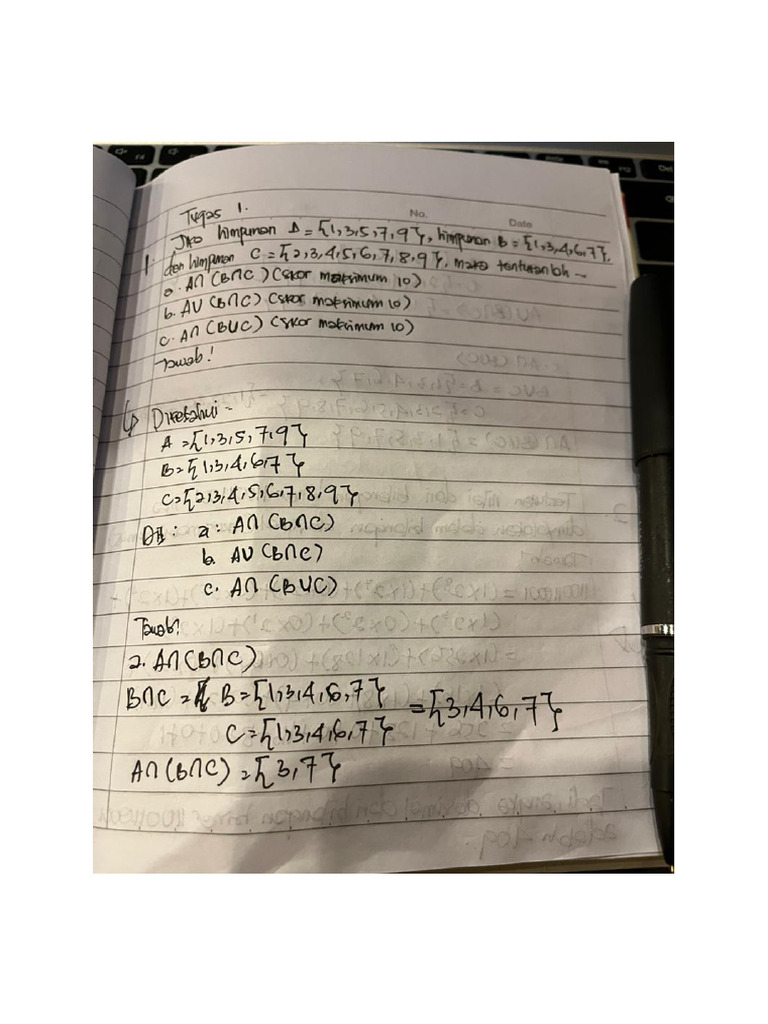 Tugas 1.
No.
Date
1. Jika himpunan A = {1,3,5,7,9}, himpunan B = {1,3,4,6,7},
dan himpunan C = {2,3,4,5,6,7,8,9}, maka tentukanlah -
a. A∩ (B∩C) (skor maksimum 10)
b. AU (B∩C) (skor maksimum 10)
c. A∩ (BUC) (skor maksimum 10)
Jawab!
↳ Diketahui =
A = {1,3,5,7,9}
B = {1,3,4,6,7}
C = {2,3,4,5,6,7,8,9}
Dit: a. A∩ (B∩C)
b. AU (B∩C)
c. A∩ (BUC)
Jawab:
a. A∩ (B∩C)
B∩C = B = {1,3,4,6,7} = {3,4,6,7}
C = {1,3,4,6,7}
A∩ (B∩C) = {3,7}